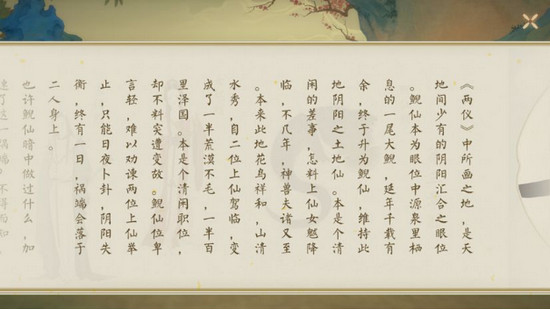 《两仪》中所画之地，是天
地间少有的阴阳汇合之眼位
。鲲仙本为眼位中源泉里栖
息的一尾大鲲，延年千载有
余，终于升为鲲仙，维持此
地阴阳之土地仙。本是个清
闲的差事，怎料上仙女魃降
临，不几年，神兽夫诸又至
。本来此地花鸟祥和，山清
水秀，自二位上仙驾临，变
成了一半荒漠不毛，一半百
里泽国。本是个清闲职位，
却不料突遭变故。鲲仙位卑
言轻，难以劝谏两位上仙举
止，只能日夜卜卦，阴阳失
衡，终有一日，祸端会落于
二人身上。
也许鲲仙暗中做过什么，加